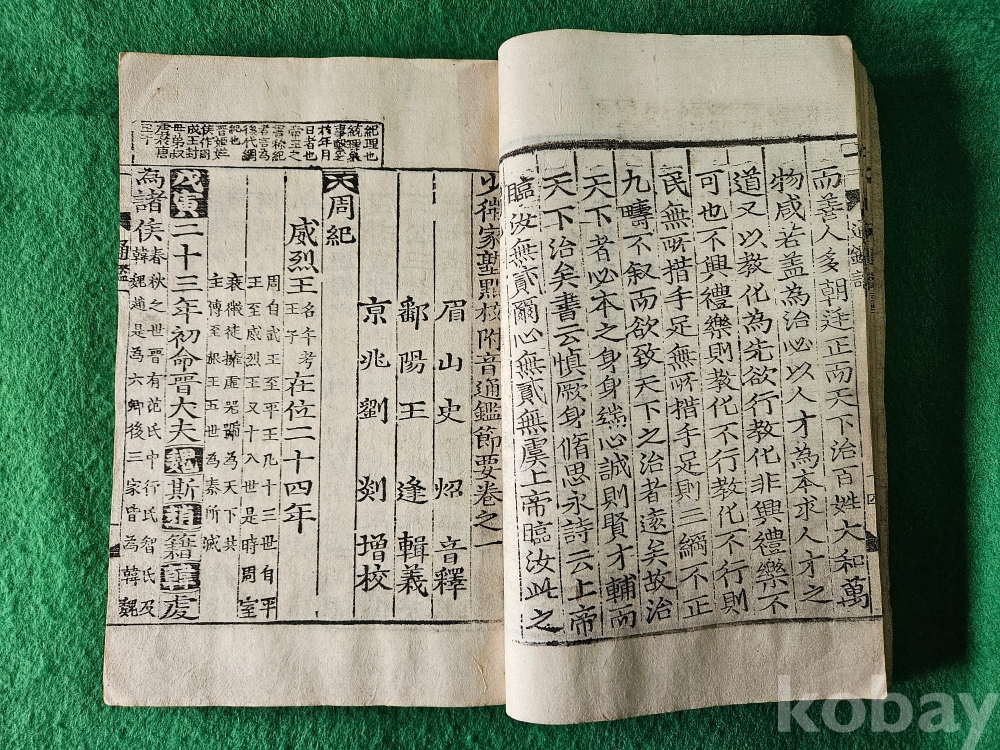 而善人多朝廷正而天下治百姓大和萬
物咸若盖為治必以人才為本求人才之
道又以教化為先欲行教化非興禮樂不
可也不興禮樂則教化不行教化不行則
民無所措手足無所措手足則三綱不正
九疇不叙而欲致天下之治者遠矣故治
天下者必本之身身端心誠則賢才輔而
天下治矣書云慎厥身脩思永詩云上帝
臨汝無貳爾心無貳無虞上帝臨汝此之
少微家塾點校附音通鑑節要卷之一
眉山史炤音釋
鄱陽王逢輯義
京兆劉剡增校
周紀
紀理也
統理衆
事繫之
於年月
日者也
帝王之
書稱紀
者言為
後代綱
紀也
晋姬姓
侯作周
成王封
母弟叔
虞於唐
威烈王名午考王子在位二十四年
周自武王至平王凡十三世自平
王至威烈王又十八世是時周室
衰微徒擁虛器號為天下共
主傳至赧王五世為秦所滅
戊寅二十三年初命晋大夫魏斯趙籍韓虔
為諸侯
春秋之世晋有范氏中行氏智氏及
韓魏趙是為六卿後三家皆為韓魏
通鑑
kobay